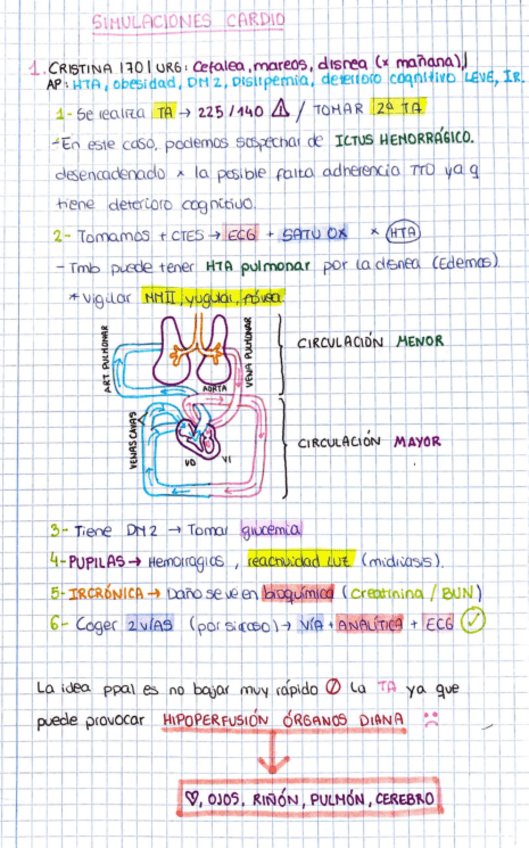 SIMULACIONES CARDIO
1. CRISTINA 170 | URG: Cefalea, mareos, disnea (x mañana),|
AP: HTA, obesidad, DM2, Dislipemia, deterioro cognitivo LEVE, IR.
1- Se realiza TA → 225/140 ⚠ / TOMAR 2ª TA
-En este caso, podemos sospechar de ICTUS HEMORRÁGICO.
desencadenado x la posible falta adherencia TTO ya q
tiene deterioro cognitivo.
2- Tomamos + CTES → ECG + SATU OX x HTA
- Tmb puede tener HTA pulmonar por la disnea (Edemas).
* vigilar MMII, yugular, fóvea.
ART PULMONAR
VENA PULMONAR
AORTA
CIRCULACIÓN MENOR
VENAS CAVAS
VD VI
CIRCULACIÓN MAYOR
3- Tiene DM2 → Tomar glucemia
4- PUPILAS → Hemorragias, reactividad LUZ (midiasis).
5- IRCRÓNICA → Daño se ve en bioquímica (Creatinina / BUN)
6- Coger 2 VÍAS (por si acaso) → VÍA + ANALÍTICA + ECG ✓
La idea ppal es no bajar muy rápido la TA ya que
puede provocar HIPOPERFUSIÓN ÓRGANOS DIANA
♡, OJOS, RIÑÓN, PULMÓN, CEREBRO